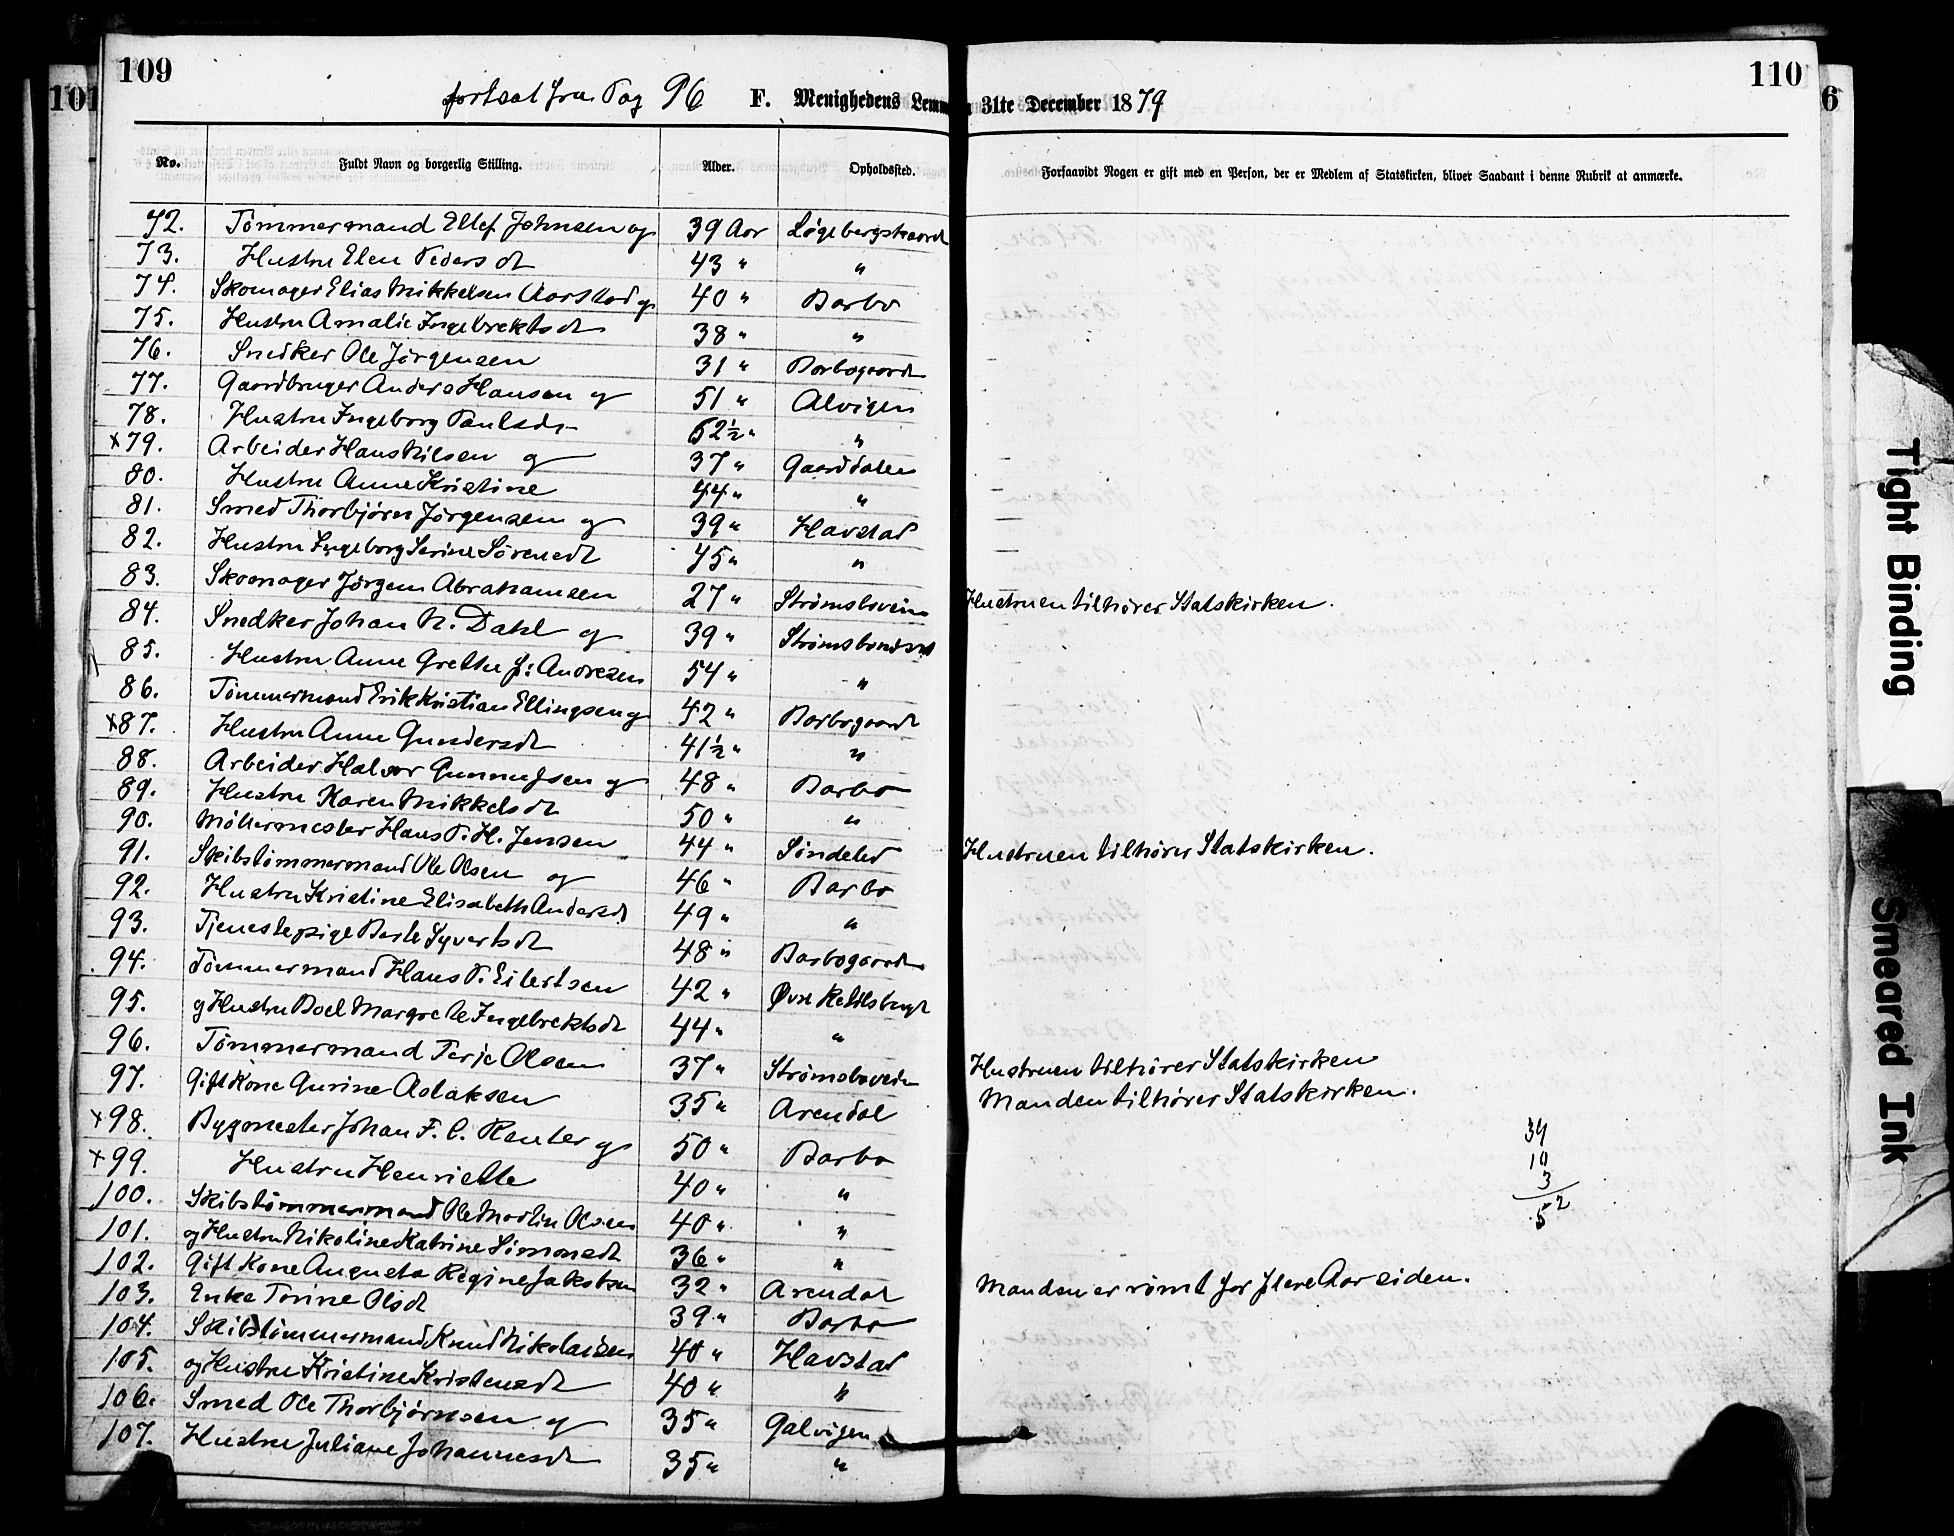 109
110
101
6
fortsat fra Pag 96 F. Menighedens Lemm 31te December 1879
No. Fuldt Navn og borgerlig Stilling. Alder. Opholdssted. Forsaavidt Nogen er gift med en Person, der er Medlem af Statskirken, bliver Saadant i denne Rubrik at anmærke.
72. Tømmermand Ellef Johnsen og 39 Aar Løgebergskaaret
73. Hustru Elen Pedersdt 43 " "
74. Skomager Elias Mikkelsen Aarstad og 40 " Barbo
75. Hustru Amalie Ingebrektsdt 38 " "
76. Snedker Ole Jørgensen 31 " Barbogaard
77. Gaardbruger Anders Hansen og 51 " Alvigen
78. Hustru Ingeborg Paulsdr 52½ " "
x79. Arbeider Hans Nilsen og 37 " Gaarddalen
80. Hustru Anne Kristine 44 " "
81. Smed Thorbjørn Jørgensen og 39 " Havstad
82. Hustru Ingeborg Serine Sørensdt 45 " "
83. Skomager Jørgen Abrahamsen 27 " Strømsboveien Hustruen tilhører Statskirken.
84. Snedker Johan N. Dahl og 39 " Strømsbundsns
85. Hustru Anne Grethe J: Andresen 54 " "
86. Tømmermand Erik Kristian Ellingsen og 42 " Barbogaard
x87. Hustru Anne Gundersdt 41½ " "
88. Arbeider Halvor Gunnufsen og 48 " Barbo
89. Hustru Karen Mikkelsdt 50 " "
90. Møllermester Hans P. H. Jensen 44 " Søndeled Hustruen tilhører Statskirken.
91. Skibstømmermand Ole Olsen og 46 " Barbo
92. Hustru Kristine Elisabeth Andersdt 49 " "
93. Tjenestepige Berte Syvertsdt 48 " Barbogaard
94. Tømmermand Hans P. Eilertsen 42 " Øvre Retilsbugt
95. og Hustru Boel Margrete Ingebrektsdt 44 " "
96. Tømmermand Terje Olsen 37 " Strømsboveien Hustruen tilhører Statskirken
97. Gift Kone Gurine Aslaksen 35 " Arendal Manden tilhører Statskirken.
x98. Bygmester Johan F. C. Reuter og 50 " Barbo
x99. Hustru Henriette 40 " "
100. Skibstømmermand Ole Martin Olsen 40 " "
101. og Hustru Nikoline Katrine Simonsdt 36 " "
102. Gift Kone Augusta Regine Jakobsen 32 " Arendal Manden er rømt for flere Aar siden.
103. Enke Torine Olsdt 39 " Barbo
104. Skibstømmermand Knud Nikolaisen 40 " Havstad
105. og Hustru Kristine Kristensdt 40 " "
106. Smed Ole Thorbjørnsen og 35 " Galvigen
107. Hustru Juliane Johannesdt 35 " "
39
10
3
52
Tight Binding
Smeared Ink